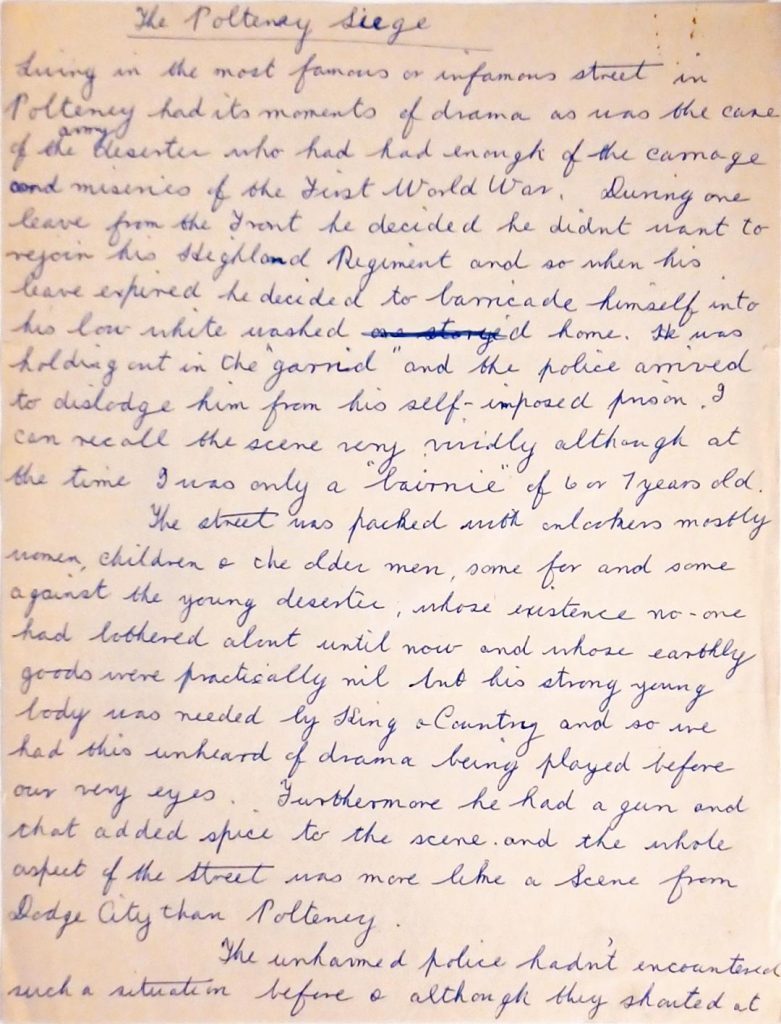 The Polteney Siege
Living in the most famous or infamous street in
Polteney had its moments of drama as was the case
of the army deserter who had had enough of the carnage
and miseries of the First World War. During one
leave from the Front he decided he didnt want to
rejoin his Highland Regiment and so when his
leave expired he decided to barricade himself into
his low white washed one storyed home. He was
holding out in the "garrid" and the police arrived
to dislodge him from his self-imposed prison. I
can recall the scene very vividly although at
the time I was only a "bairnie" of 6 or 7 years old.
The street was packed with onlookers mostly
women, children & the older men, some for and some
against the young deserter, whose existence no-one
had bothered about until now and whose earthly
goods were practically nil but his strong young
body was needed by King & Country and so we
had this unheard of drama being played before
our very eyes. Furthermore he had a gun and
that added spice to the scene. and the whole
aspect of the street was more like a Scene from
Dodge City than Polteney.
The unharmed police hadn't encountered
such a situation before & although they shouted at